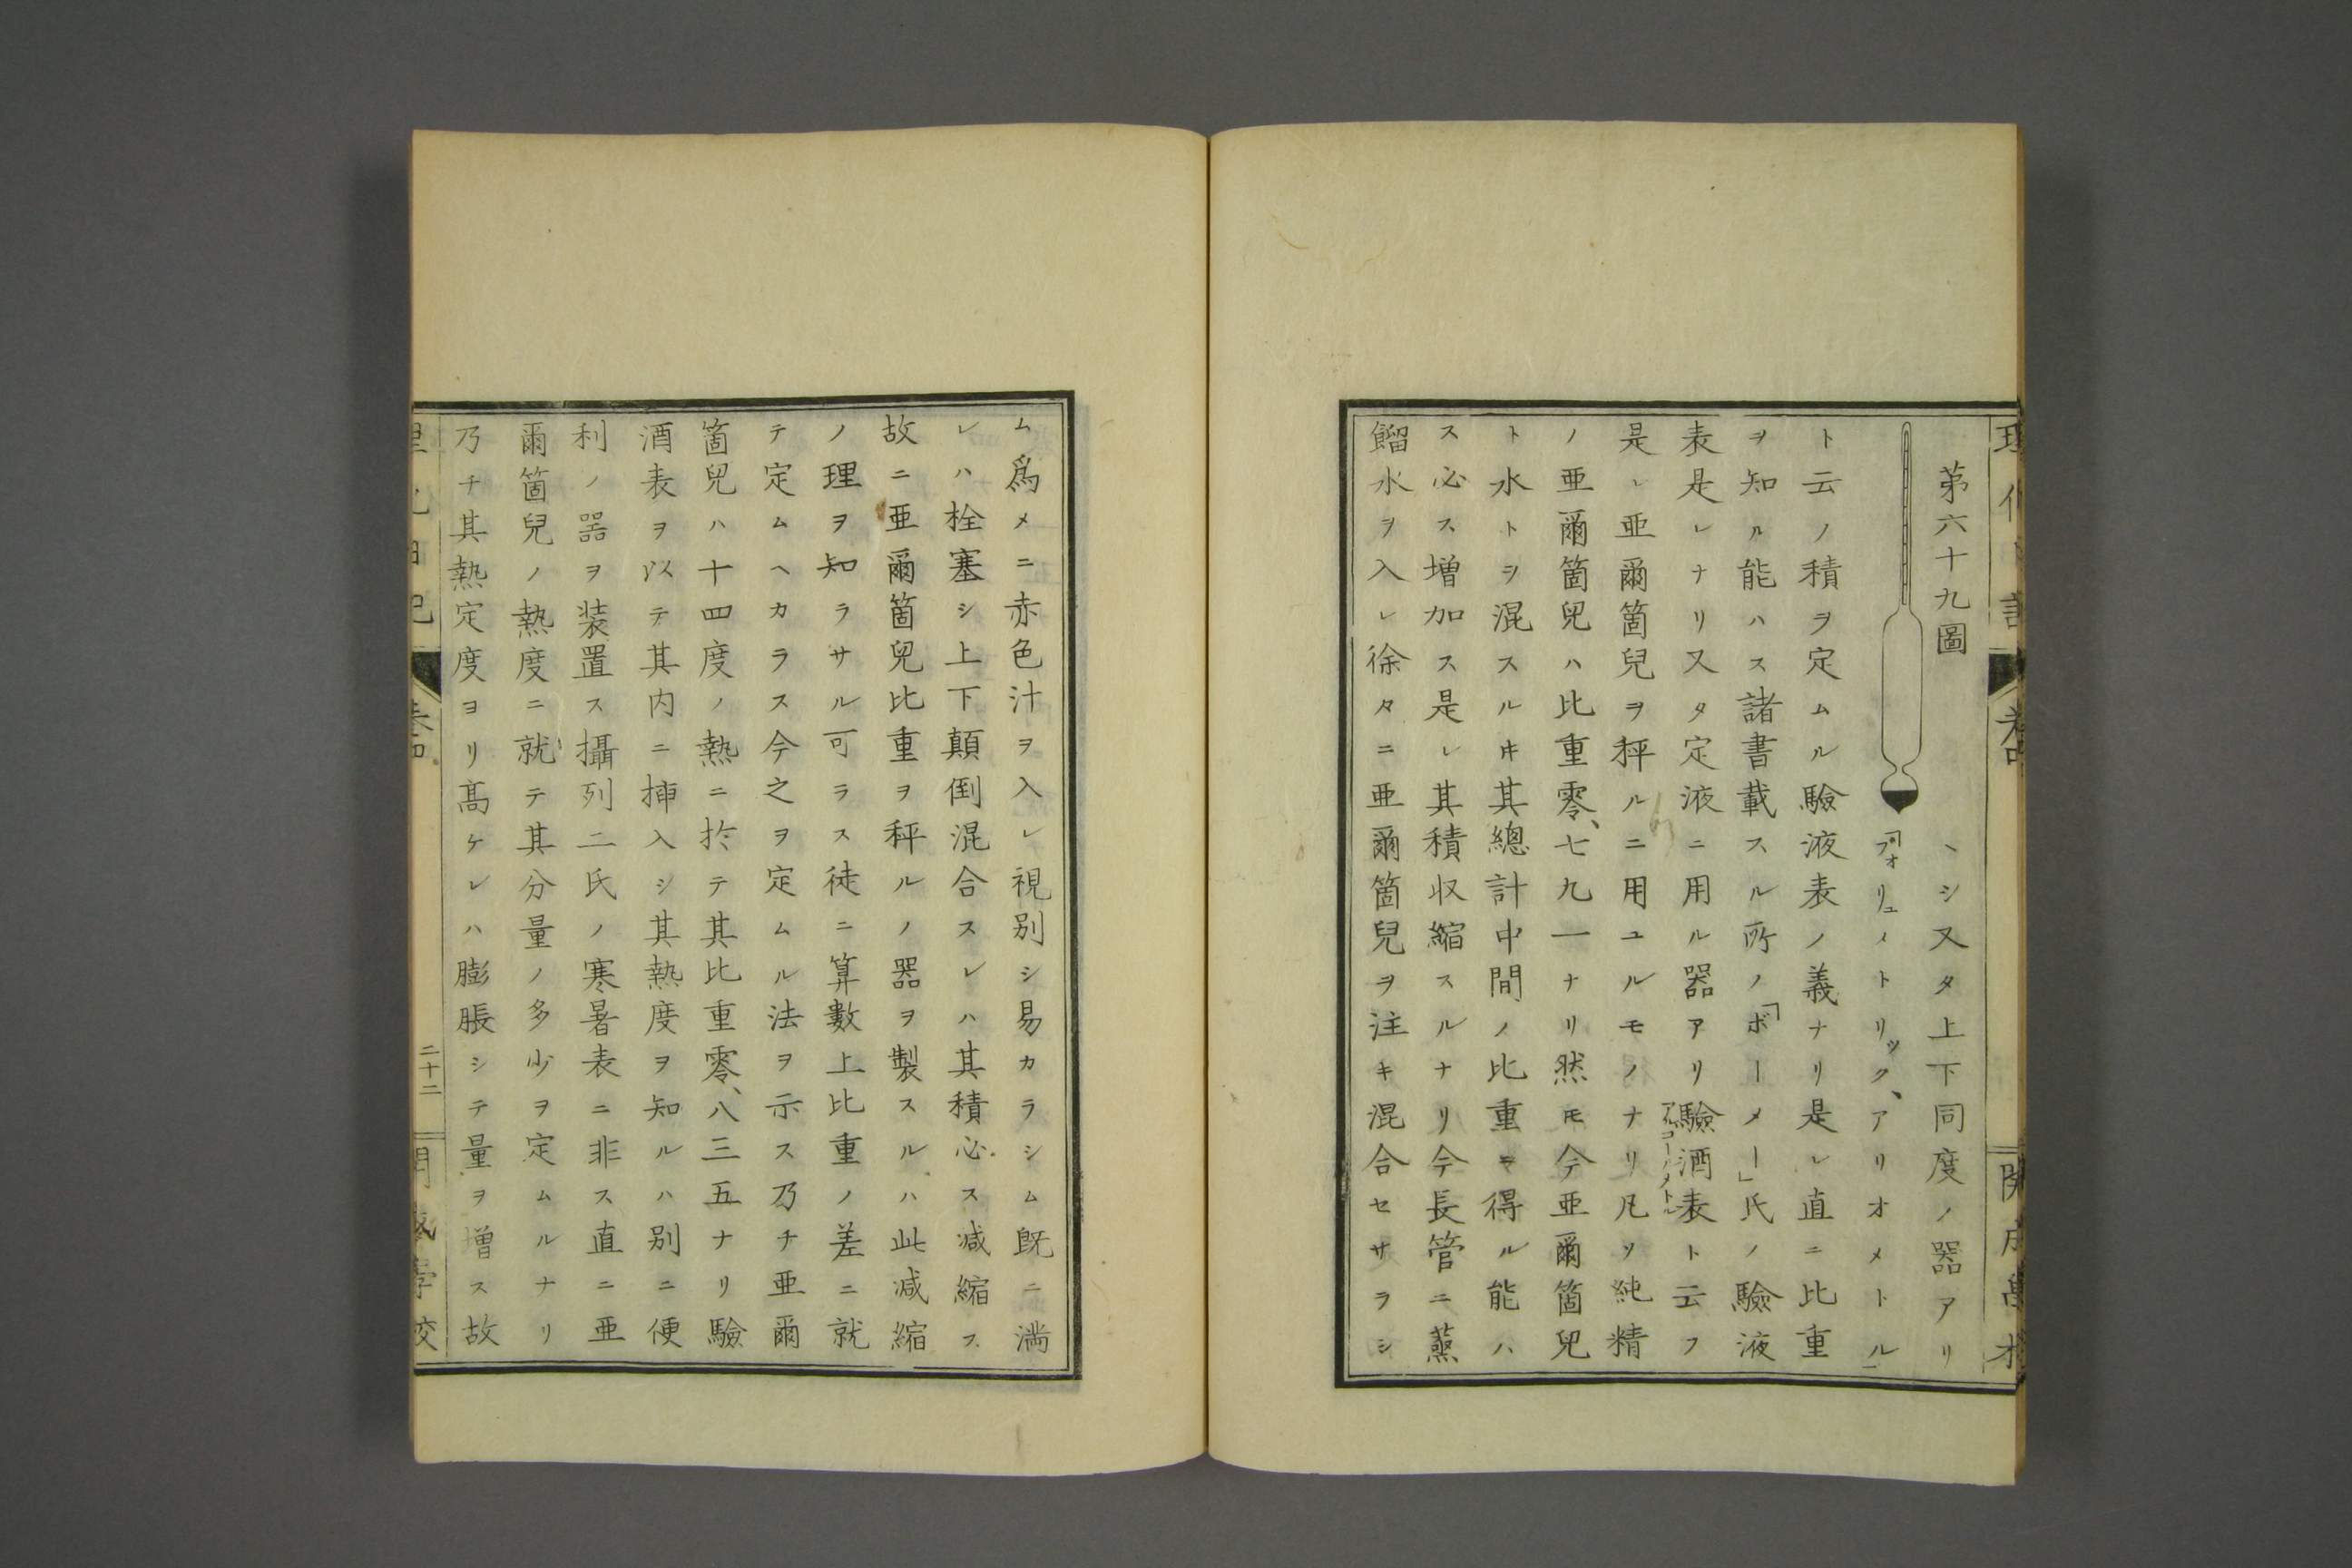 第六十九圖
ヽシ又タ上下同度ノ器アリ
「フォリュメトリック、アリオメトル」
ト云ノ積ヲ定ムル驗液表ノ義ナリ是レ直ニ比重
ヲ知ル能ハス諸書載スル所ノ「ボーメー」氏ノ驗液
表是レナリ又タ定液ニ用ル器アリ驗酒表ト云フ
アルコーノメトル
是レ亜爾箇兒ヲ秤ルニ用ユルモノナリ凡ソ純精
ノ亜爾箇兒ハ比重零、七九一ナリ然モ今亜爾箇兒
ト水トヲ混スルキ其總計中間ノ比重ヲ得ル能ハ
ス必ス増加ス是レ其積収縮スルナリ今長管ニ蒸
餾水ヲ入レ徐々ニ亜爾箇兒ヲ注キ混合セサラシ
ム爲メニ赤色汁ヲ入レ視別シ易カラシム既ニ満
レハ栓塞シ上下顛倒混合スレハ其積必ス减縮ス
故ニ亜爾箇兒比重ヲ秤ルノ器ヲ製スルハ此减縮
ノ理ヲ知ラサル可ラス徒ニ算數上比重ノ差ニ就
テ定ムヘカラス今之ヲ定ムル法ヲ示ス乃チ亜爾
箇兒ハ十四度ノ熱ニ於テ其比重零、八三五ナリ驗
酒表ヲ以テ其内ニ挿入シ其熱度ヲ知ルハ別ニ便
利ノ器ヲ装置ス攝列二氏ノ寒暑表ニ非ス直ニ亜
爾箇兒ノ熱度ニ就テ其分量ノ多少ヲ定ムルナリ
乃チ其熱定度ヨリ髙ケレハ膨脹シテ量ヲ増ス故
二十二